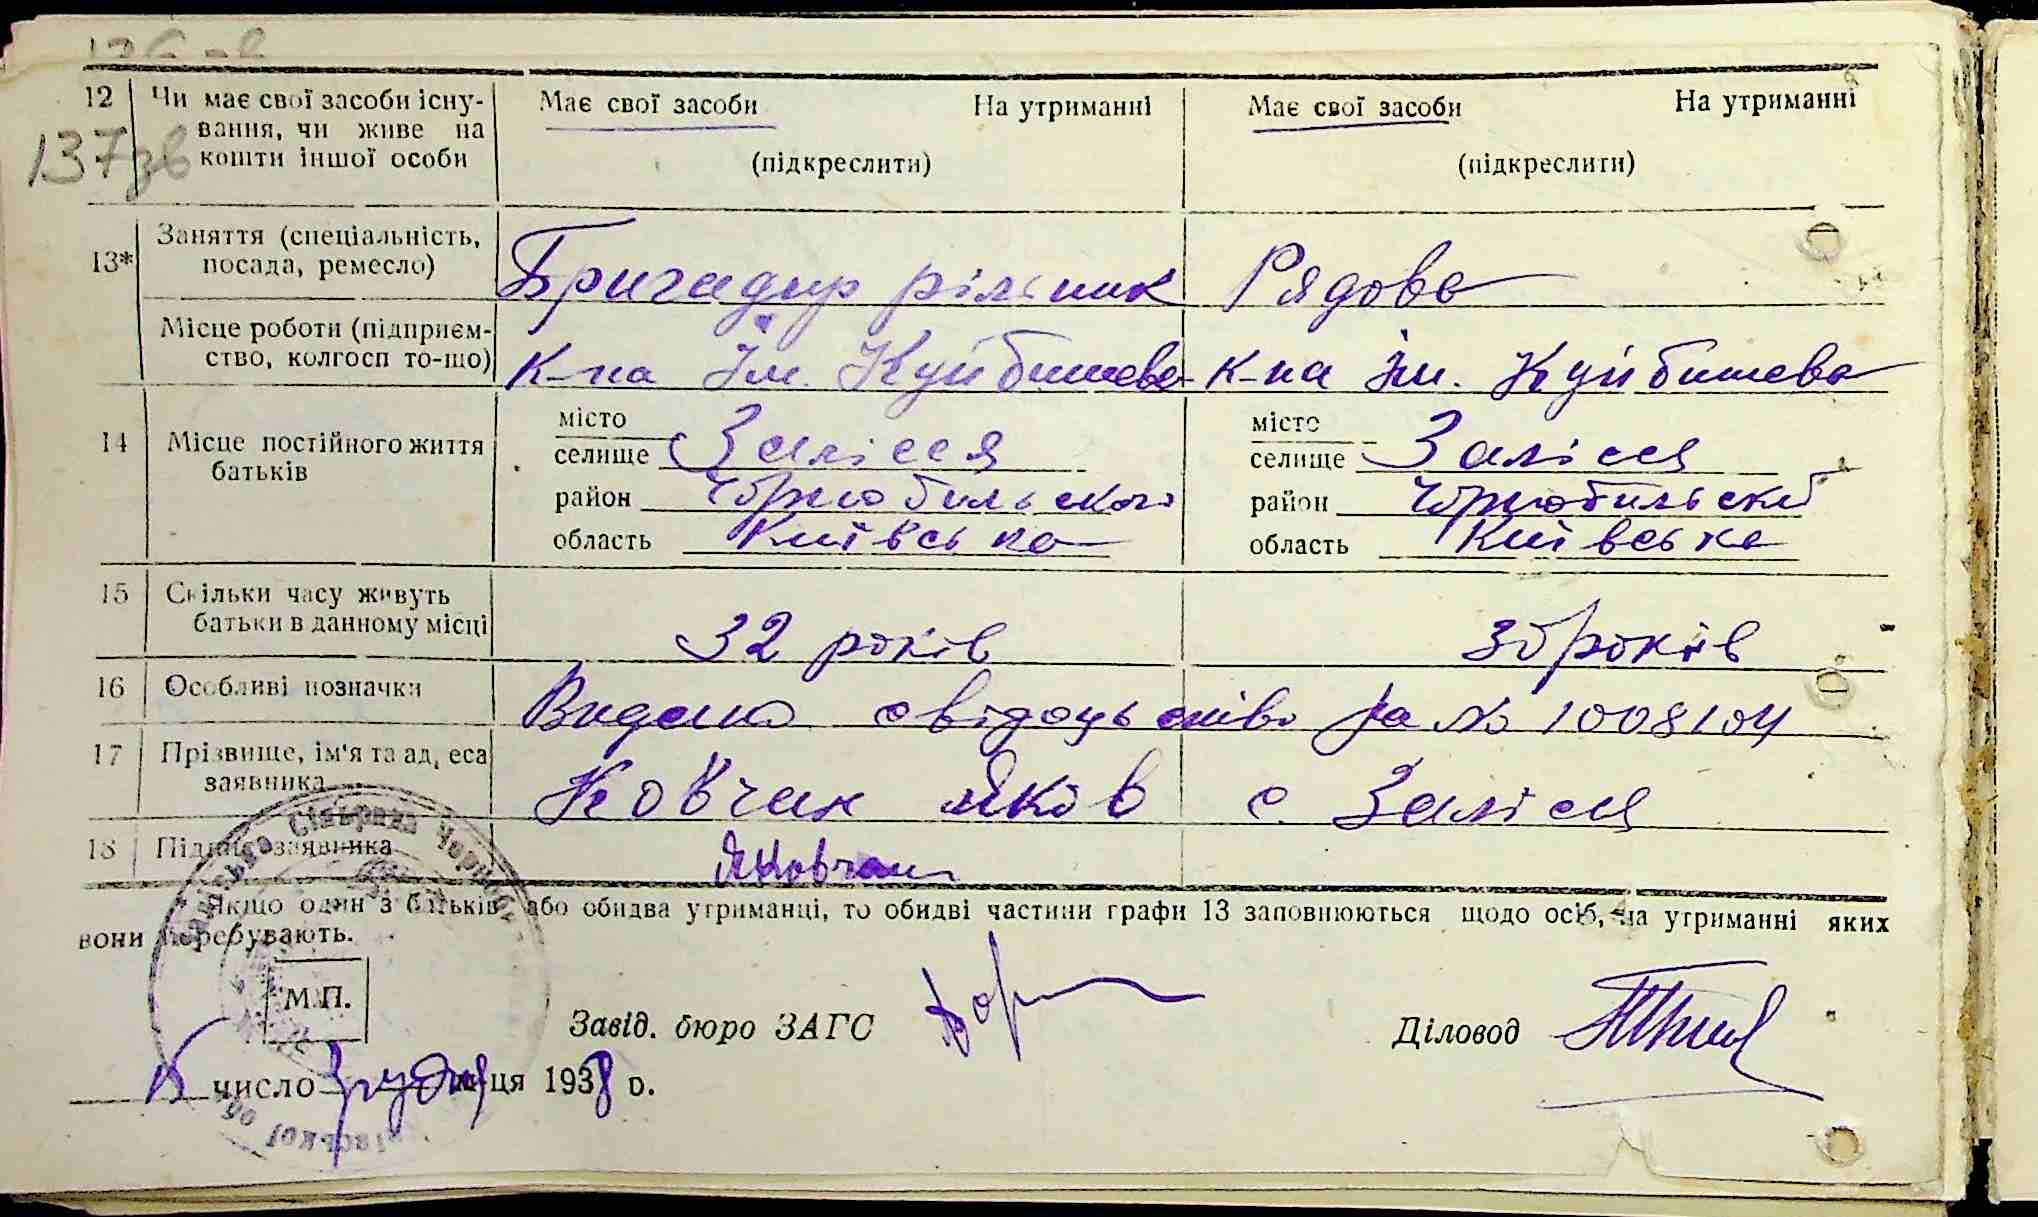 137зв
12 Чи має свої засоби існу- Має свої засоби На утриманні Має свої засоби На утриманні
вання, чи живе на
кошти іншої особи (підкреслити) (підкреслити)
13* Заняття (спеціальність, посада, ремесло) Бригадир рільник Рядова
Місце роботи (підприєм-
ство, колгосп то-що) К-па Ім. Куйбишева К-па Ім. Куйбишева
14 Місце постійного життя
батьків
місто місто
селище Залісся селище Залісся
район Чорнобильского район Чорнобильский
область Київська область Київська
15 Скільки часу живуть
батьки в данному місці 32 років 30 років
16 Особливі позначки Видано свідоцьство за № 1008104
17 Прізвище, ім'я та адреса
заявника Ковчан Яков с. Залісся
18 Підпис заявника ЯКовчан
Якщо один з батьків або обидва утриманці, то обидві частини графи 13 заповнюються щодо осіб, на утриманні яких
вони перебувають.
М.П.
Завід. бюро ЗАГС Діловод
15 число Грудня м-ця 1938 р.